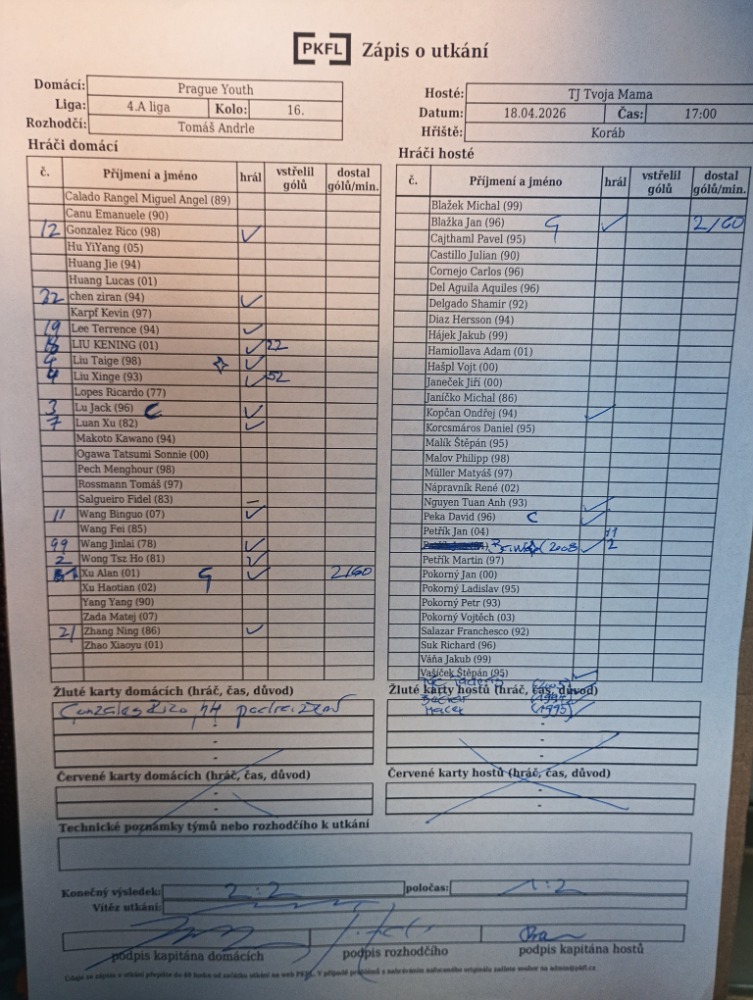 PKFL Zápis o utkání
Domácí: Prague Youth
Liga: 4.A liga Kolo: 16.
Rozhodčí: Tomáš Andrle
Hosté: TJ Tvoja Mama
Datum: 18.04.2026 Čas: 17:00
Hřiště: Koráb
Hráči domácí
č. Příjmení a jméno hrál vstřelil gólů dostal gólů/min.
Calado Rangel Miguel Angel (89)
Canu Emanuele (90)
12 Gonzalez Rico (98) ✓
Hu YiYang (05)
Huang Jie (94)
Huang Lucas (01)
22 chen ziran (94) ✓
Karpf Kevin (97)
19 Lee Terrence (94) ✓
LIU KENING (01) ✓ 22
Liu Taige (98) ✓
4 Liu Xinge (93) ✓ 52
Lopes Ricardo (77)
3 Lu Jack (96) C ✓
7 Luan Xu (82) ✓
Makoto Kawano (94)
Ogawa Tatsumi Sonnie (00)
Pech Menghour (98)
Rossmann Tomáš (97)
Salgueiro Fidel (83) –
11 Wang Binguo (07) ✓
Wang Fei (85)
99 Wang Jinlai (78) ✓
2 Wong Tsz Ho (81) ✓
Xu Alan (01) G ✓ 2/60
Xu Haotian (02)
Yang Yang (90)
Zada Matej (07)
21 Zhang Ning (86) ✓
Zhao Xiaoyu (01)
Hráči hosté
č. Příjmení a jméno hrál vstřelil gólů dostal gólů/min.
Blažek Michal (99)
Blažka Jan (96) G ✓ 2/60
Cajthaml Pavel (95)
Castillo Julian (90)
Cornejo Carlos (96)
Del Aguila Aquiles (96)
Delgado Shamir (92)
Diaz Hersson (94)
Hájek Jakub (99)
Hamiollava Adam (01)
Hašpl Vojt (00)
Janeček Jiří (00)
Janíčko Michal (86)
Kopčan Ondřej (94) ✓
Korcsmáros Daniel (95)
Malík Štěpán (95)
Malov Philipp (98)
Müller Matyáš (97)
Nápravník René (02)
Nguyen Tuan Anh (93) ✓
Peka David (96) C ✓
Petřík Jan (04) 11
2003 ✓ 2
Petřík Martin (97)
Pokorný Jan (00)
Pokorný Ladislav (95)
Pokorný Petr (93)
Pokorný Vojtěch (03)
Salazar Franchesco (92)
Suk Richard (96)
Váňa Jakub (99)
Vašíček Štěpán (95) ✓
(1995)
Žluté karty domácích (hráč, čas, důvod)
Gonzales Rizo, 44 podražení
-
-
-
Žluté karty hostů (hráč, čas, důvod)
-
-
Červené karty domácích (hráč, čas, důvod)
-
-
Červené karty hostů (hráč, čas, důvod)
-
-
Technické poznámky týmů nebo rozhodčího k utkání
Konečný výsledek: 2:2 poločas: 1:2
Vítěz utkání:
podpis kapitána domácích podpis rozhodčího podpis kapitána hostů